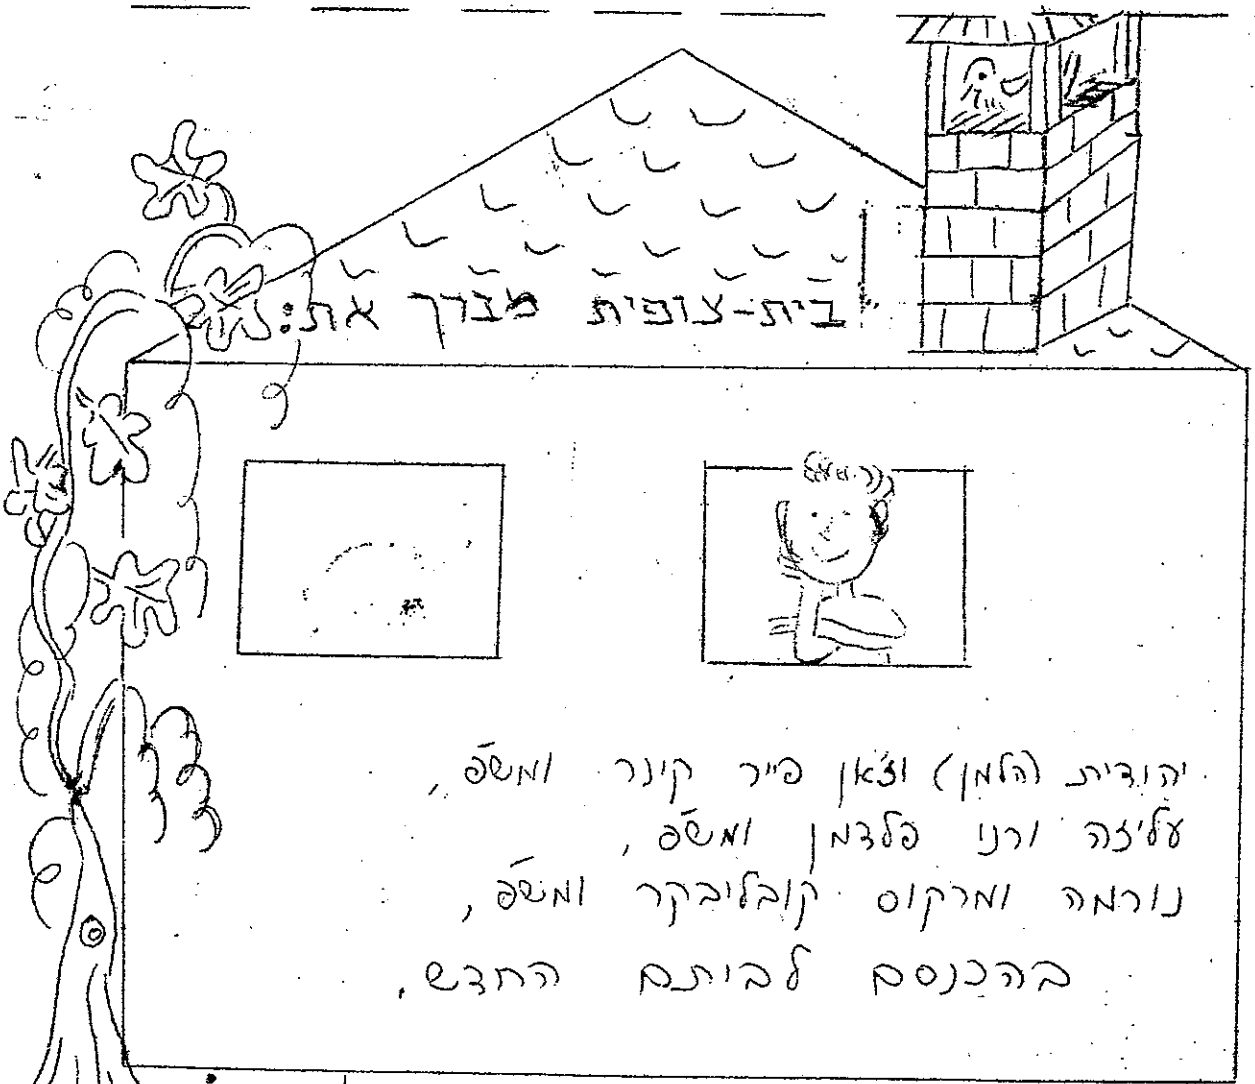 בית-צופית מברך את:
יהודית (הלמן) וז'אן פייר קינר ומשפ',
עליזה ורני פלדמן ומשפ',
נורמה ומרקוס קובליבקר ומשפ',
בהכנסם לביתם החדש.